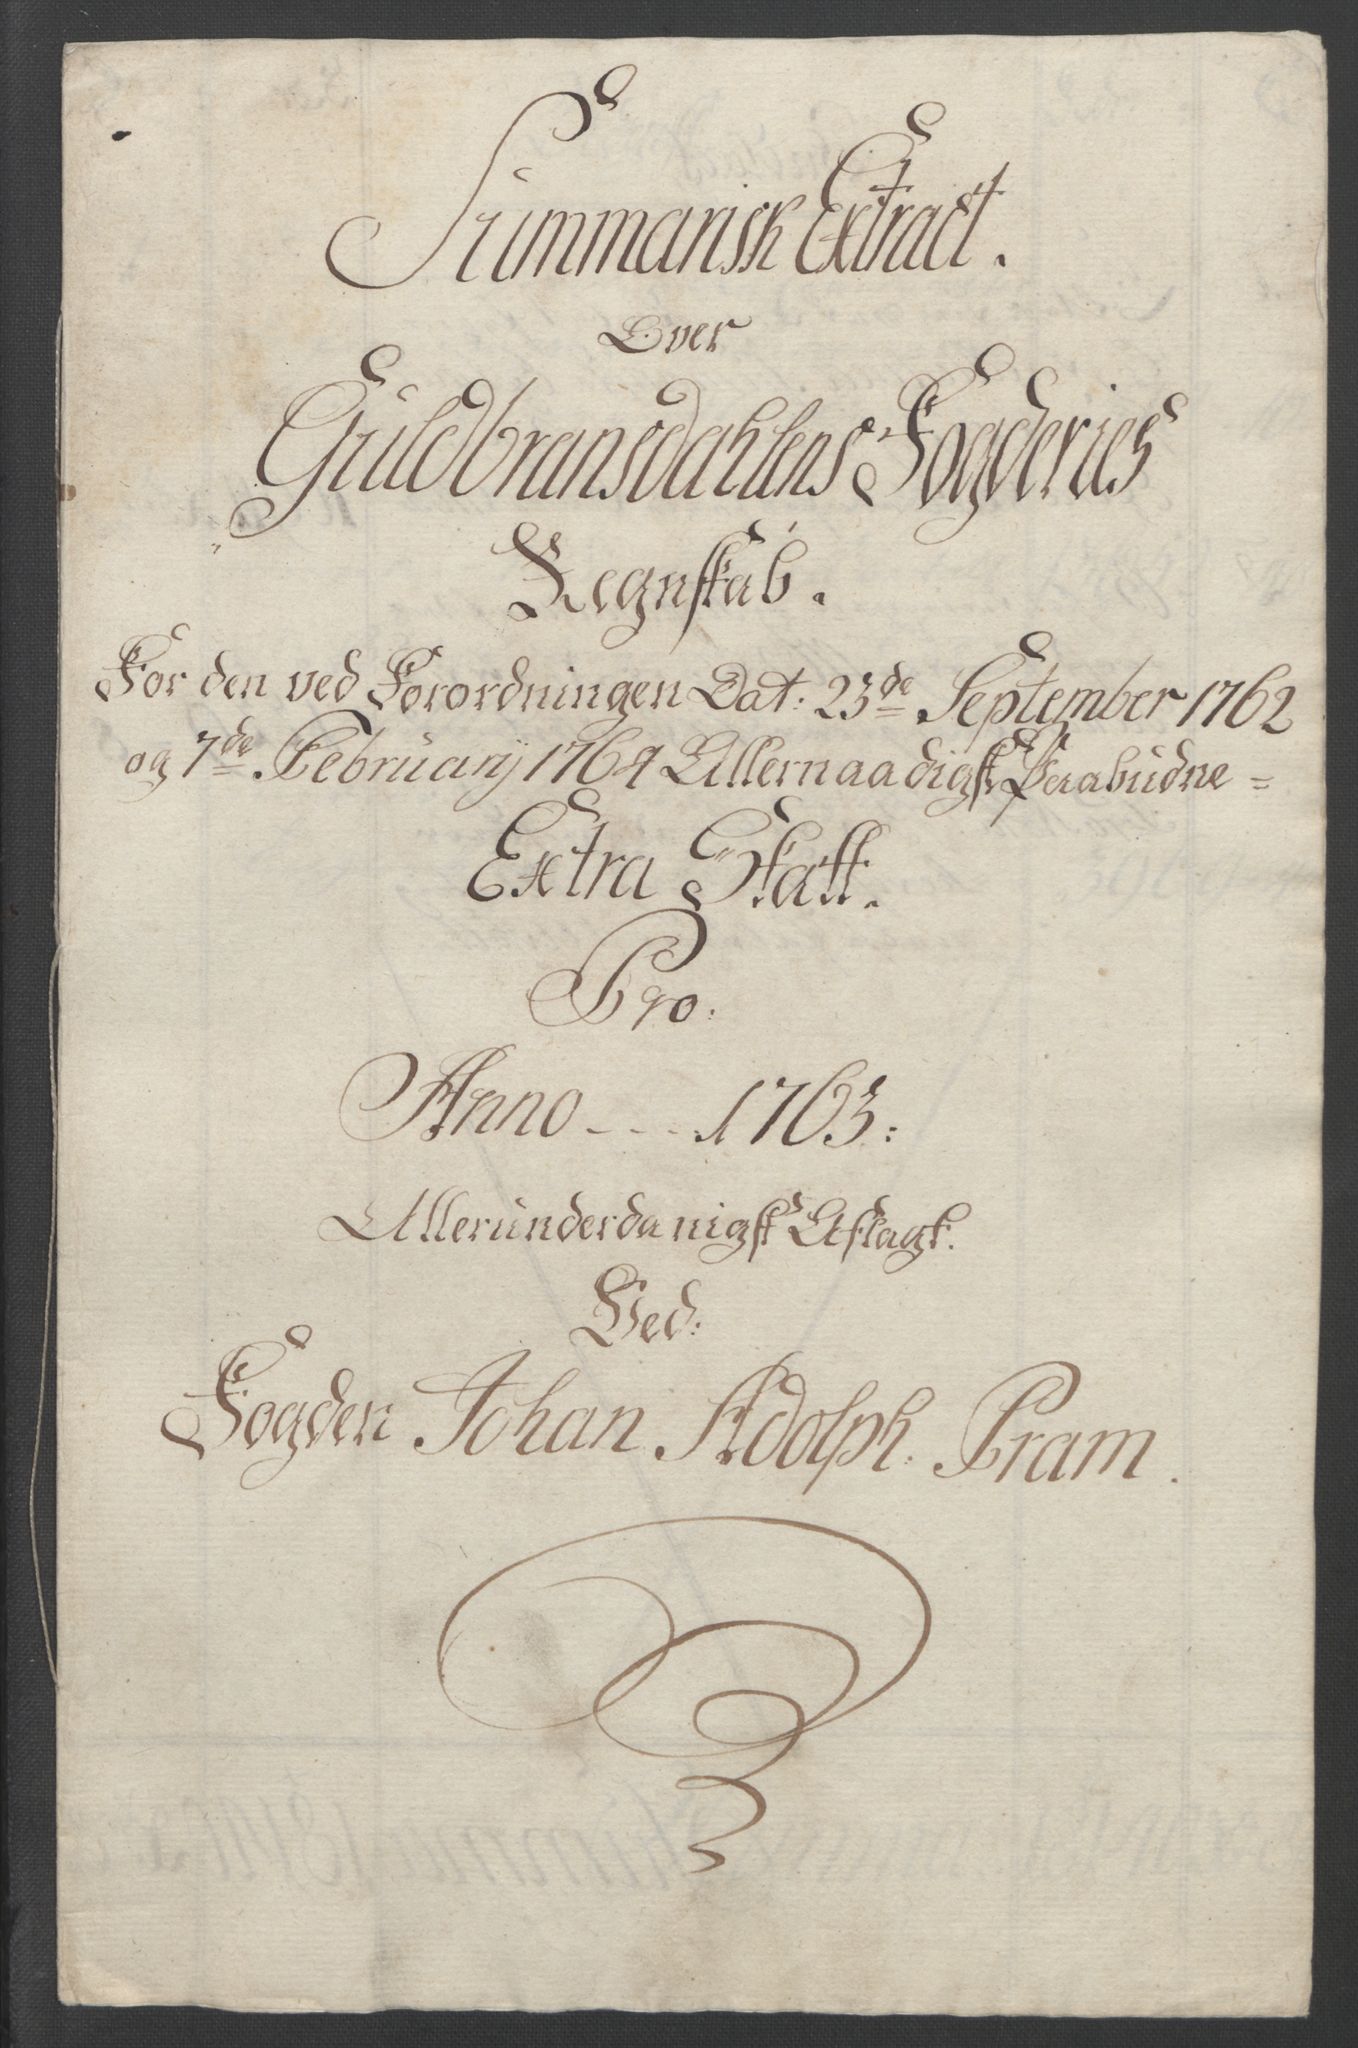 Summarisk Extract.
Over
Guldbransdahlens Fogderies
Regnskab.
For den ved Forordningen Dat: 23de September 1762
og 7de Februarij 1764 Allernaadigst Paabudne =
Extra Skatt.
Pro.
Anno - - - - 1763:
Allerunderdanigst Aflagt.
Ved:
Fogden Johan Adolph: Pram.